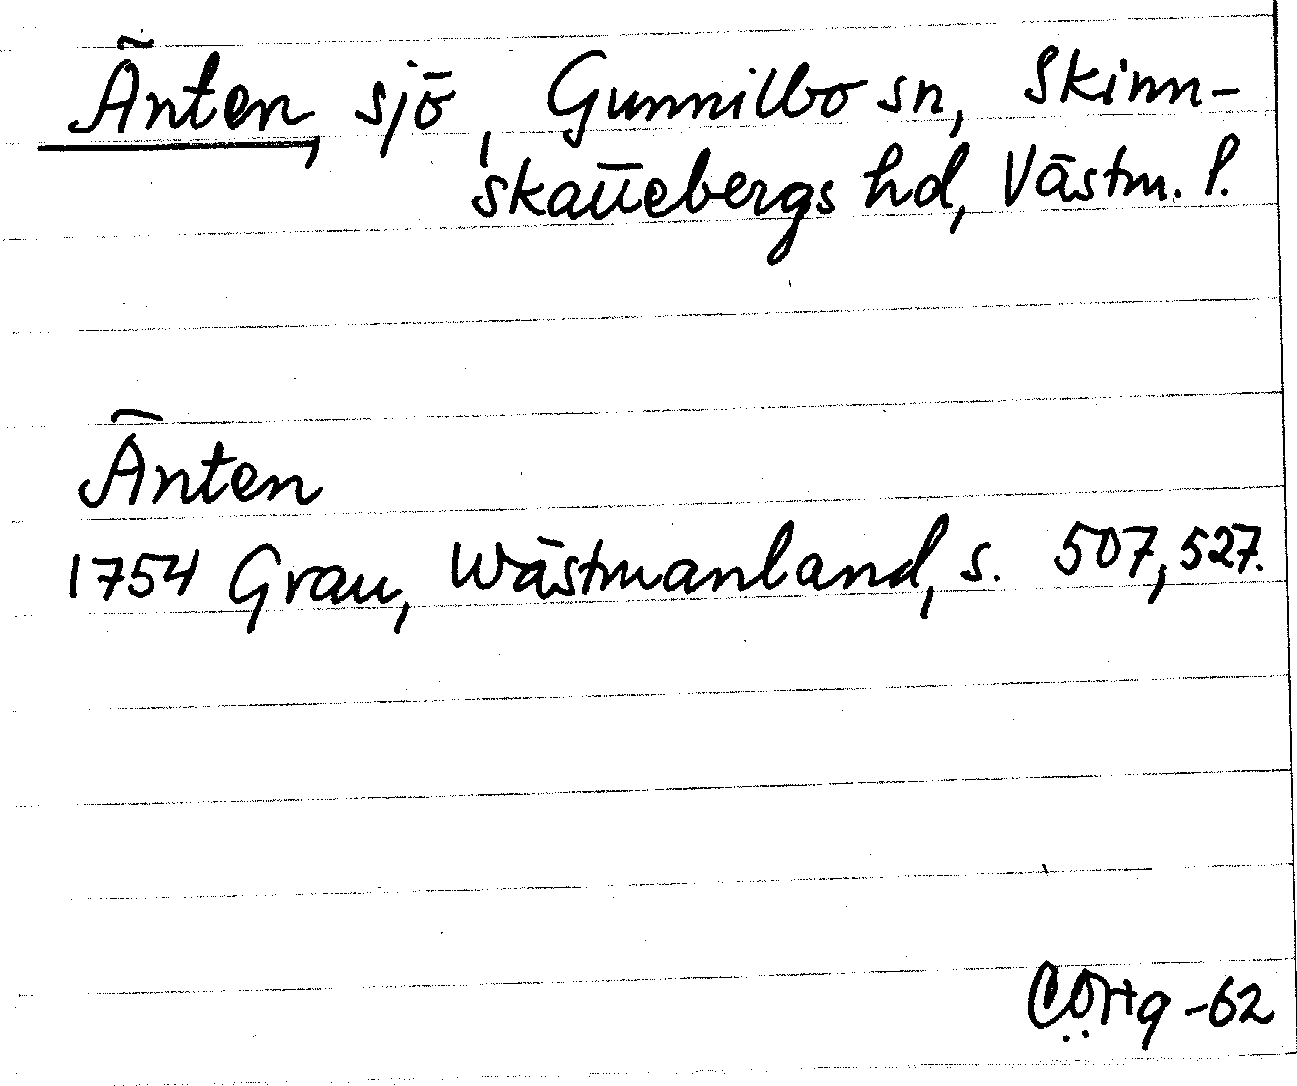 Änten, sjö, Gunnilbo sn, Skinn-
skattebergs hd, Västm. l.
Änten
1754 Grau, Wästmanland, s. 507, 527.
-62